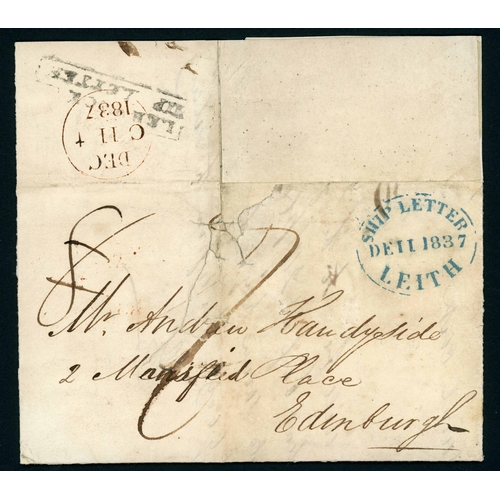 DEC
C 11 +
1837
LETTER
SHIP LETTER
DE 11 1837
LEITH
8
Mr. Andrew Handyside
2 Mansfield Place
Edinburgh